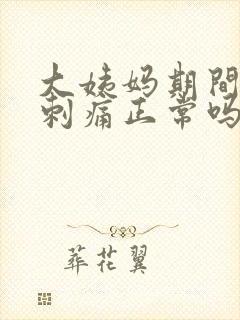 大姨妈期间
刺痛正常吗
葬花翼